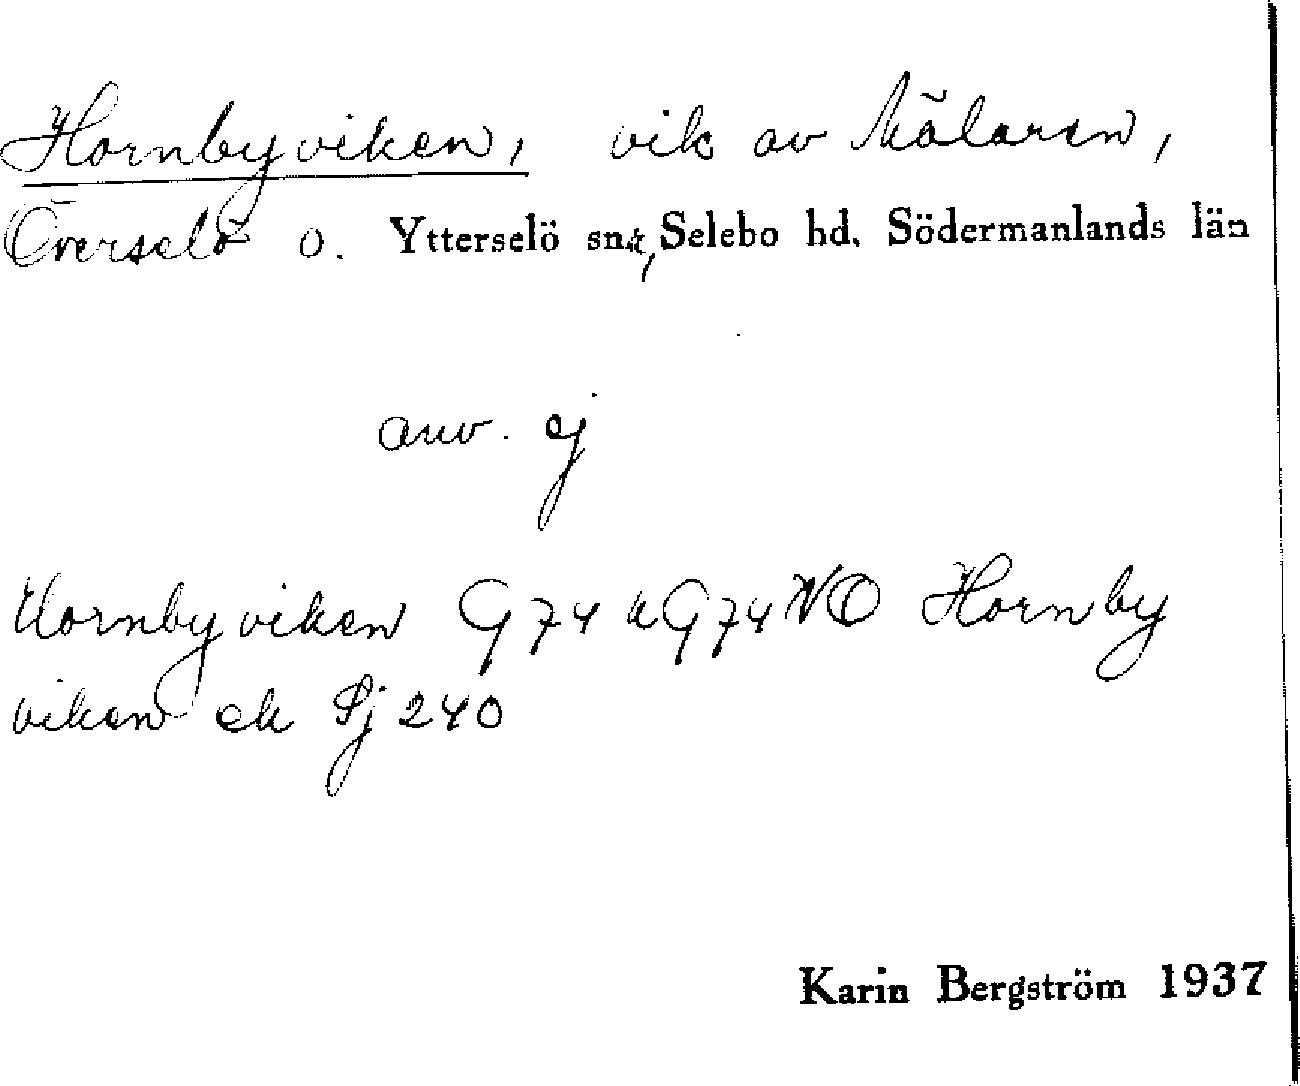 Hornbyviken, vik av Mälaren,
Överselö o. Ytterselö snr, Selebo hd. Södermanlands län
anv. ej
Hornbyviken G 74 k G 74 NO Hornby
viken ek Sj 240
Karin Bergström 1937